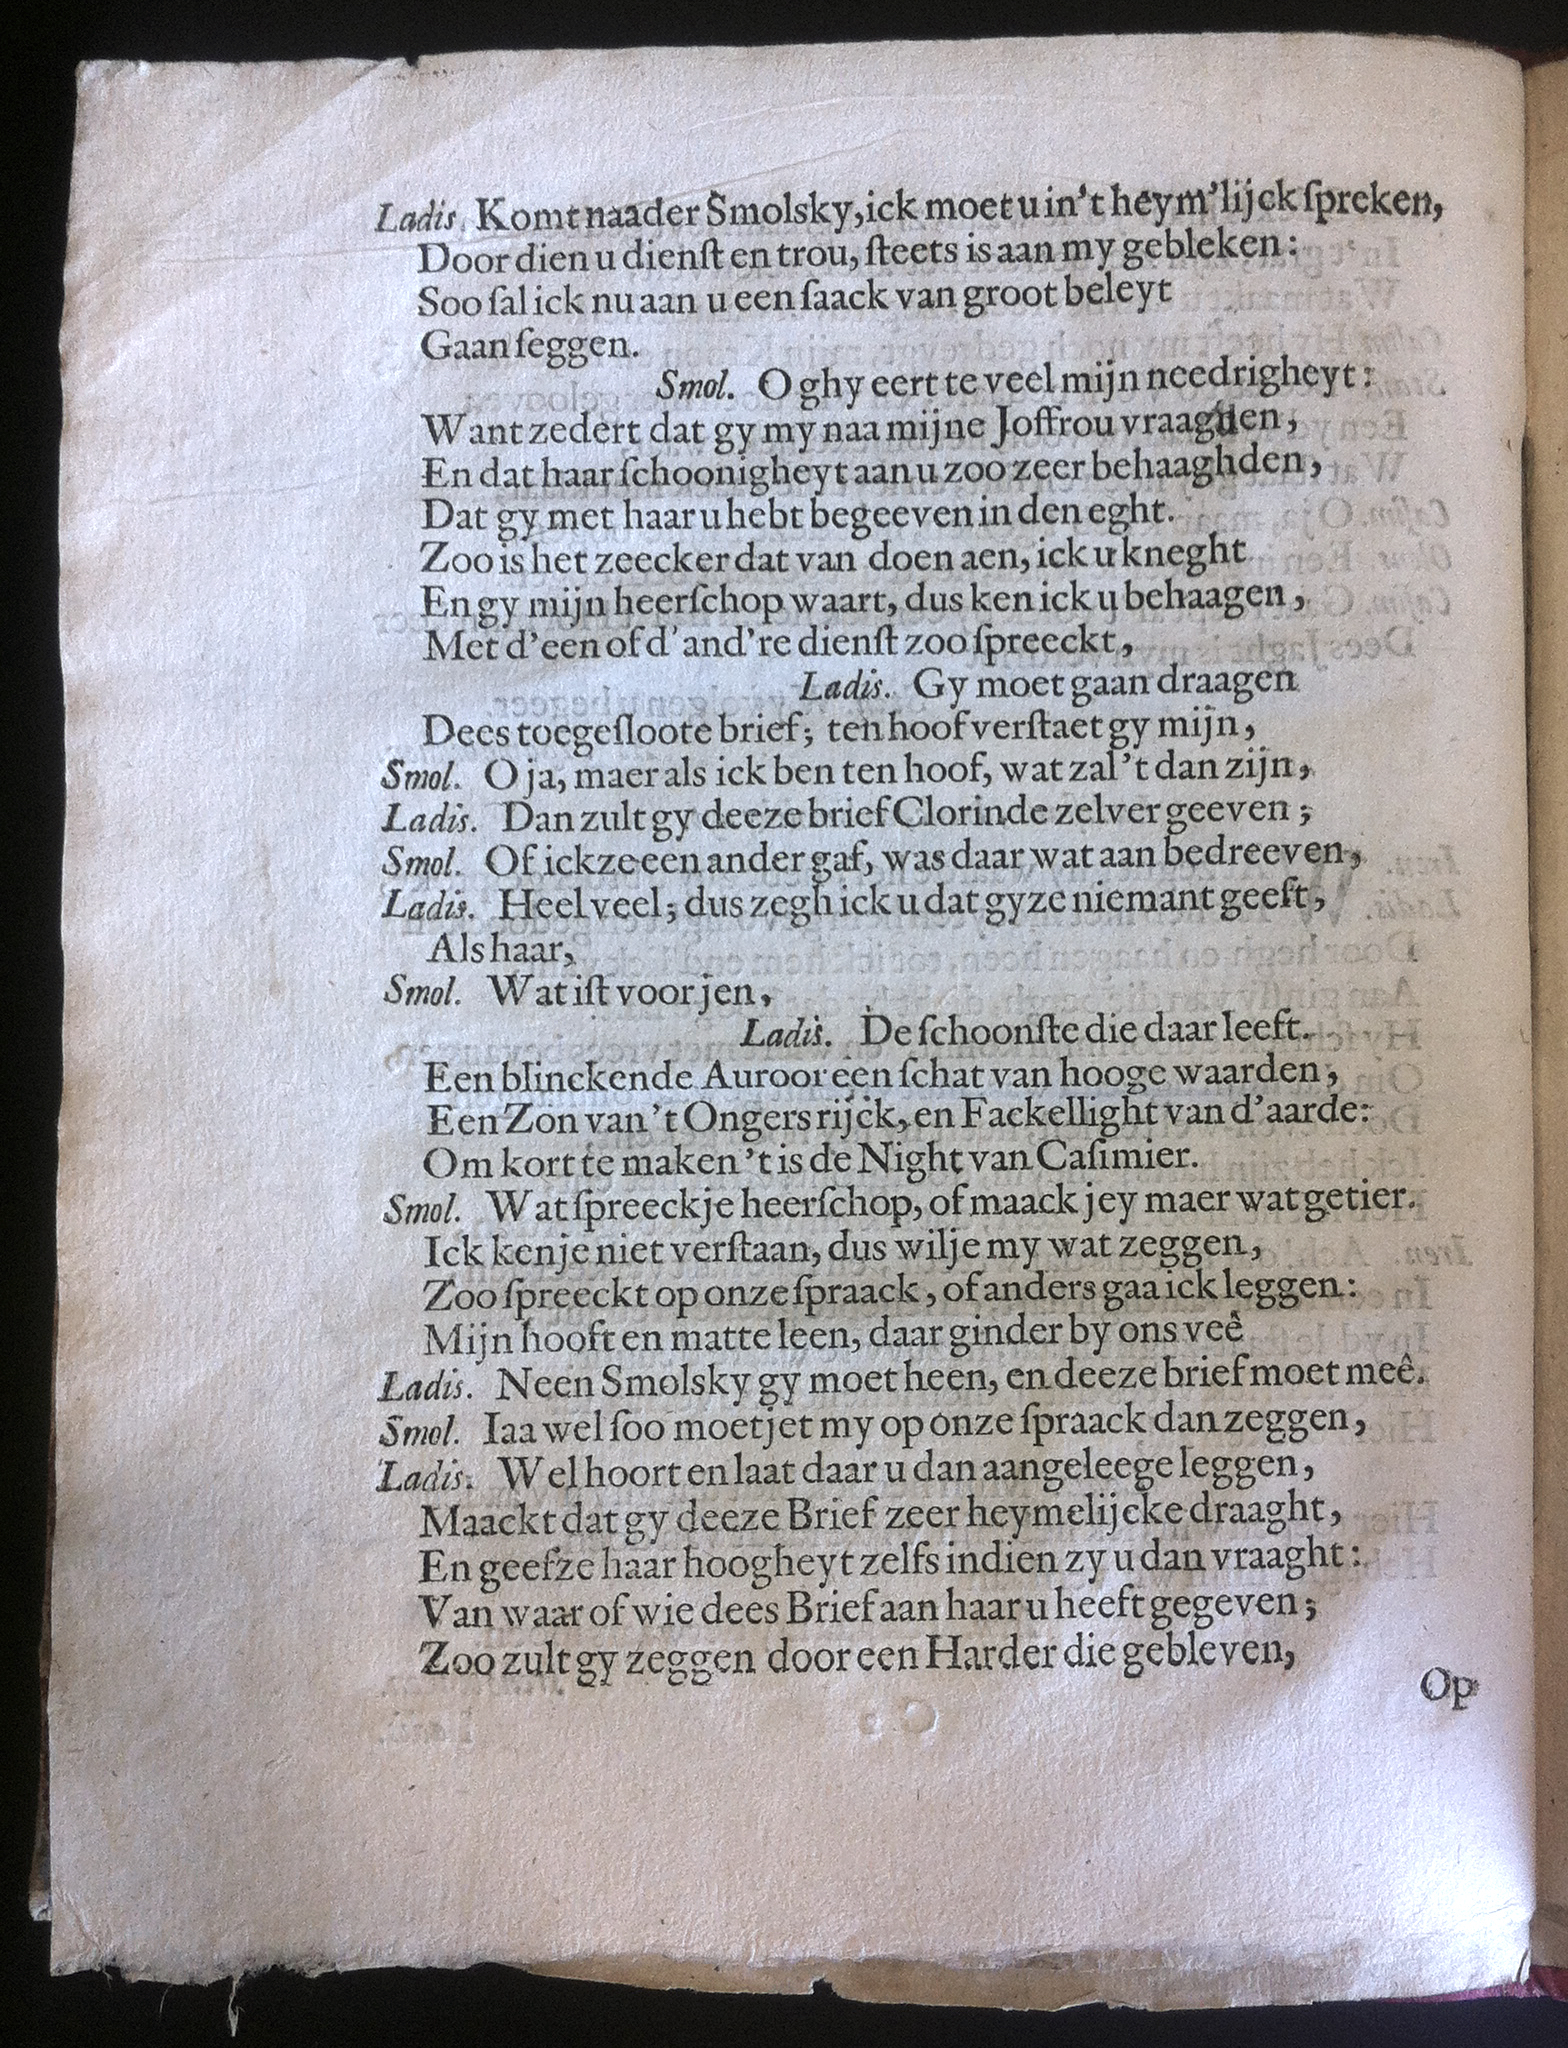 Ladis. Komt naader Smolsky, ick moet u in't heym'lijck ſpreken,
Door dien u dienſt en trou, ſteets is aan my gebleken:
Soo ſal ick nu aan u een ſaack van groot beleyt
Gaan ſeggen.
Smol. O ghy eert te veel mijn needrigheyt:
Want zedert dat gy my naa mijne Joffrou vraaghden,
En dat haar ſchoonigheyt aan u zoo zeer behaaghden,
Dat gy met haar u hebt begeeven in den eght.
Zoo is het zeecker dat van doen aen, ick u kneght
En gy mijn heerſchop waart, dus ken ick u behaagen,
Met d'een of d'and're dienſt zoo ſpreeckt,
Ladis. Gy moet gaan draagen
Dees toegeſloote brief; ten hoof verſtaet gy mijn,
Smol. O ja, maer als ick ben ten hoof, wat zal't dan zijn,
Ladis. Dan zult gy deeze brief Clorinde zelver geeven;
Smol. Of ick ze een ander gaf, was daar wat aan bedreeven,
Ladis. Heel veel; dus zegh ick u dat gy ze niemant geeft,
Als haar,
Smol. Wat iſt voor jen,
Ladis. De ſchoonſte die daar leeft.
Een blinckende Auroor een ſchat van hooge waarden,
Een Zon van 't Ongers rijck, en Fackellight van d'aarde:
Om kort te maken 't is de Night van Caſimier.
Smol. Wat ſpreeckje heerſchop, of maack jey maer wat getier.
Ick ken je niet verſtaan, dus wil je my wat zeggen,
Zoo ſpreeckt op onze ſpraack, of anders gaa ick leggen:
Mijn hooft en matte leen, daar ginder by ons veê
Ladis. Neen Smolsky gy moet heen, en deeze brief moet meê.
Smol. Iaa wel ſoo moet jet my op onze ſpraack dan zeggen,
Ladis. Wel hoort en laat daar u dan aangeleege leggen,
Maackt dat gy deeze Brief zeer heymelijcke draaght,
En geefze haar hoogheyt zelfs indien zy u dan vraaght:
Van waar of wie dees Brief aan haar u heeft gegeven;
Zoo zult gy zeggen door een Harder die gebleven,
Op